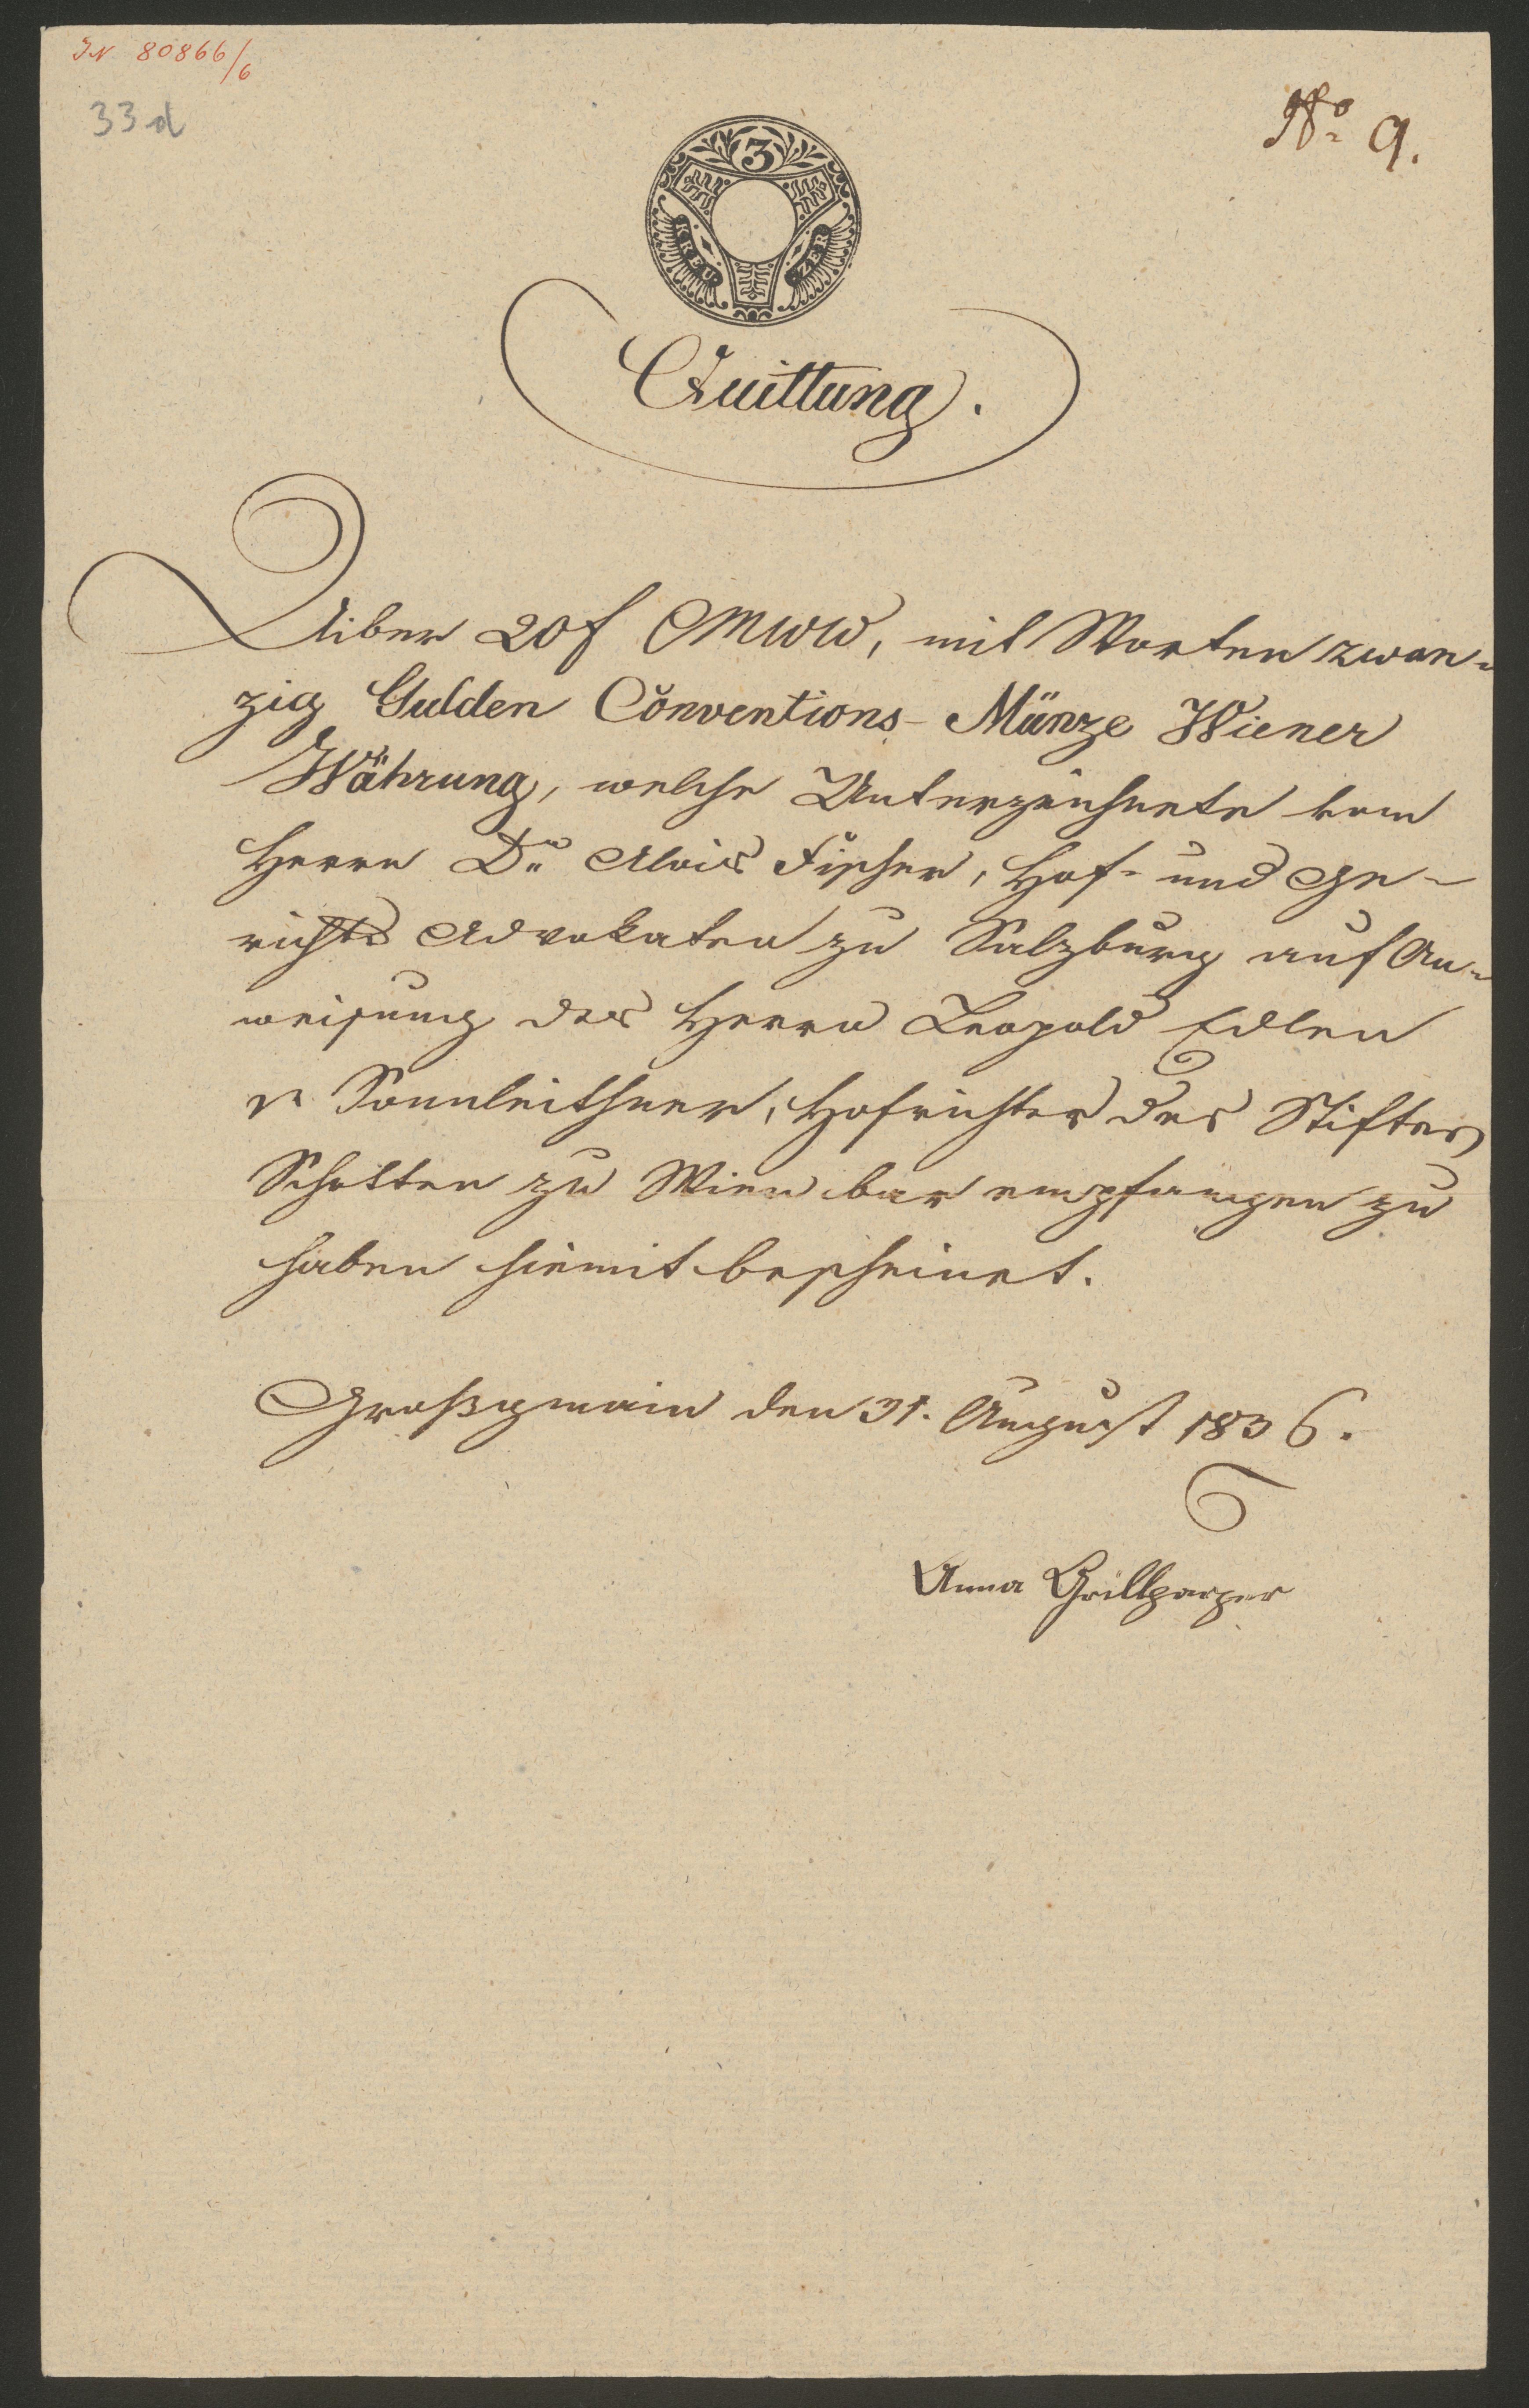 IN 80866/6
33d
No 9.
3
KREUZER
Quittung.
Uiber 20 f CMWW, mit Worten zwan-
zig Gulden Conventions-Münze Wiener
Währung, welche Unterzeichnete vom
Herrn Dr. Alois Fischer, Hof- und Ge-
richts Advokaten zu Salzburg auf An-
weisung des Herrn Leopold Edlen
v. Sonnleithner, Hofrichter des Stiftes
Schotten zu Wien bar empfangen zu
haben hiemit bescheinet.
Großgmain den 31. August 1836.
Anna Grillparzer